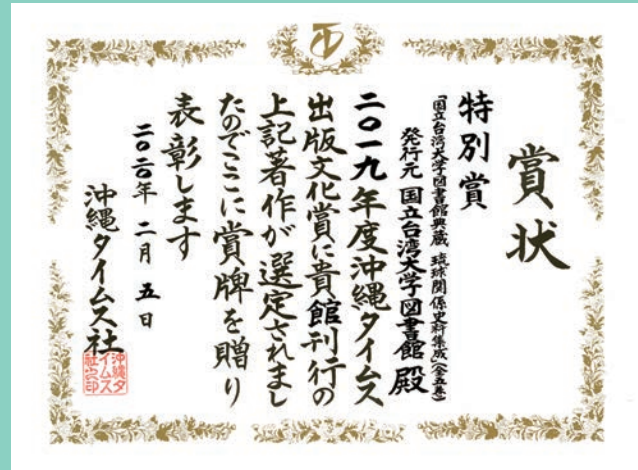 賞状
特別賞
『国立台湾大学図書館典蔵 琉球関係史料集成』(全五巻)
発行元 国立台湾大学図書館 殿
二〇一九年度沖縄タイムス
出版文化賞に貴館刊行の
上記著作が選定されまし
たのでここに賞牌を贈り
表彰します
二〇二〇年 二月 五日
沖縄タイムス社
沖縄タ
イムス
社之印